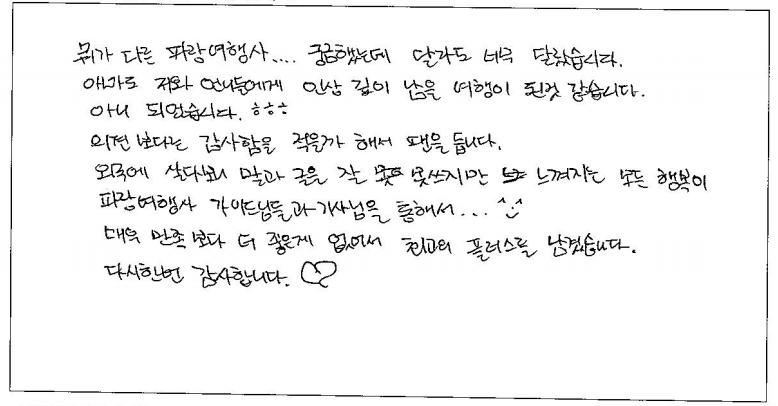 뭐가 다른 파랑여행사.... 궁금했는데 달라도 너무 달랐습니다.
아마도 저와 언니들에게 인상 깊이 남을 여행이 된것 같습니다.
아니 되었습니다. ㅎㅎㅎ
의견 보다는 감사함을 적을까 해서 팬을 듭니다.
외국에 살다보니 말과 글은 잘 못쓰지만 느껴지는 모든 행복이
파랑여행사 가이드님들과 기사님을 통해서... ^_^
매우 만족 보다 더 좋은게 없어서 최고의 플러스를 남겼습니다.
다시한번 감사합니다. ♡